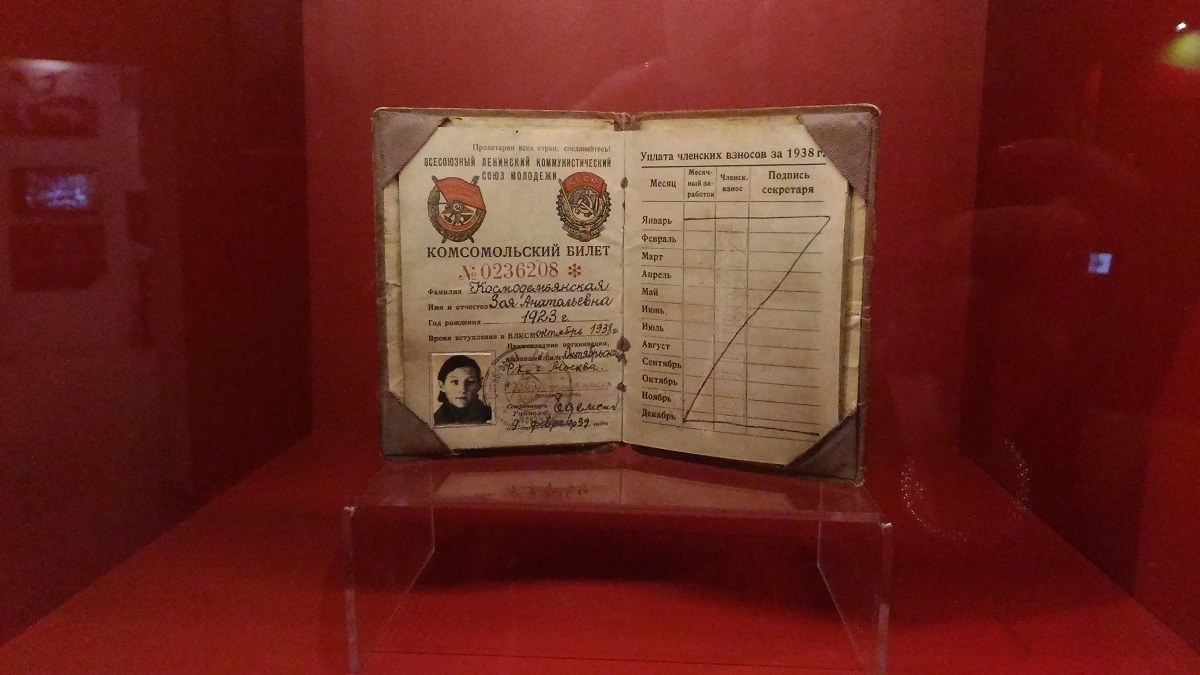 Пролетарии всех стран, соединяйтесь!
ВСЕСОЮЗНЫЙ ЛЕНИНСКИЙ КОММУНИСТИЧЕСКИЙ
СОЮЗ МОЛОДЕЖИ
СССР
КОМСОМОЛЬСКИЙ БИЛЕТ
№ 0236208 *
Фамилия Космодемьянская
Имя и отчество Зоя Анатольевна
Год рождения 1923 г.
Время вступления в ВЛКСМ октябрь 1938 г
Наименование организации,
выдавшей билет Октябрьский
Р.К. г. Москва.
Секретарь
Райкома
"9" февраля 39 года
Уплата членских взносов за 1938 г.
Месяц
Месяч-
ный за-
работок
Членск.
взнос
Подпись
секретаря
Январь
Февраль
Март
Апрель
Май
Июнь
Июль
Август
Сентябрь
Октябрь
Ноябрь
Декабрь